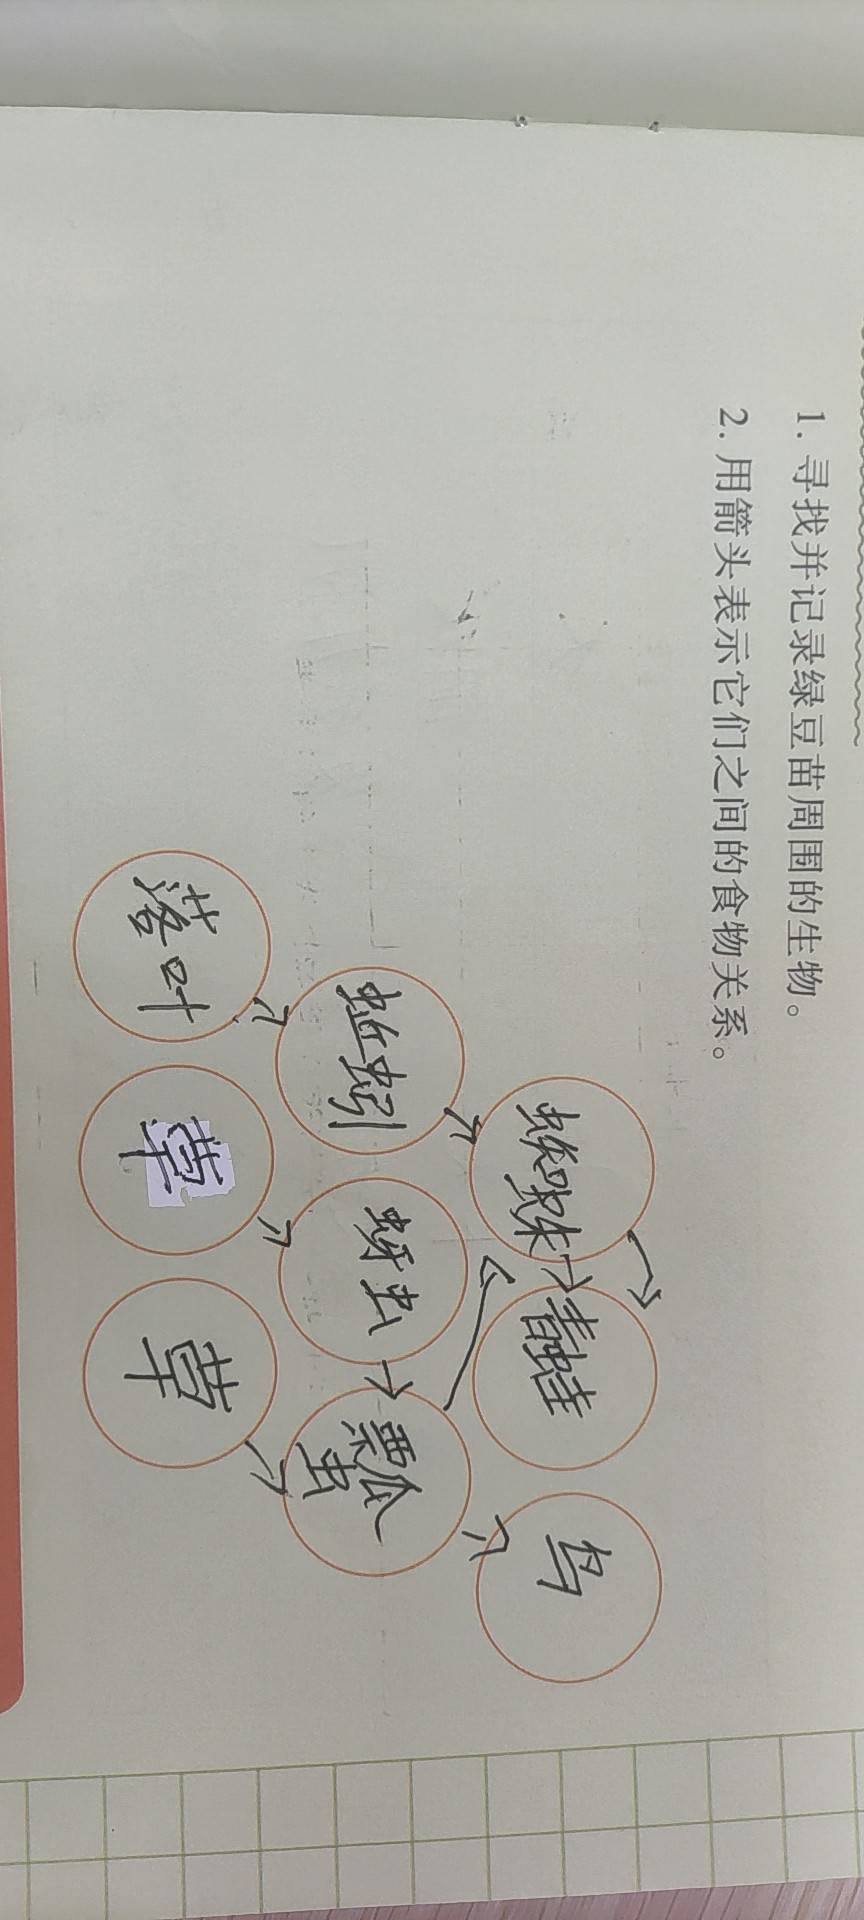 1. 寻找并记录绿豆苗周围的生物。
2. 用箭头表示它们之间的食物关系。
蜘蛛
青蛙
鸟
蚯蚓
蚜虫
瓢虫
落叶
草
草